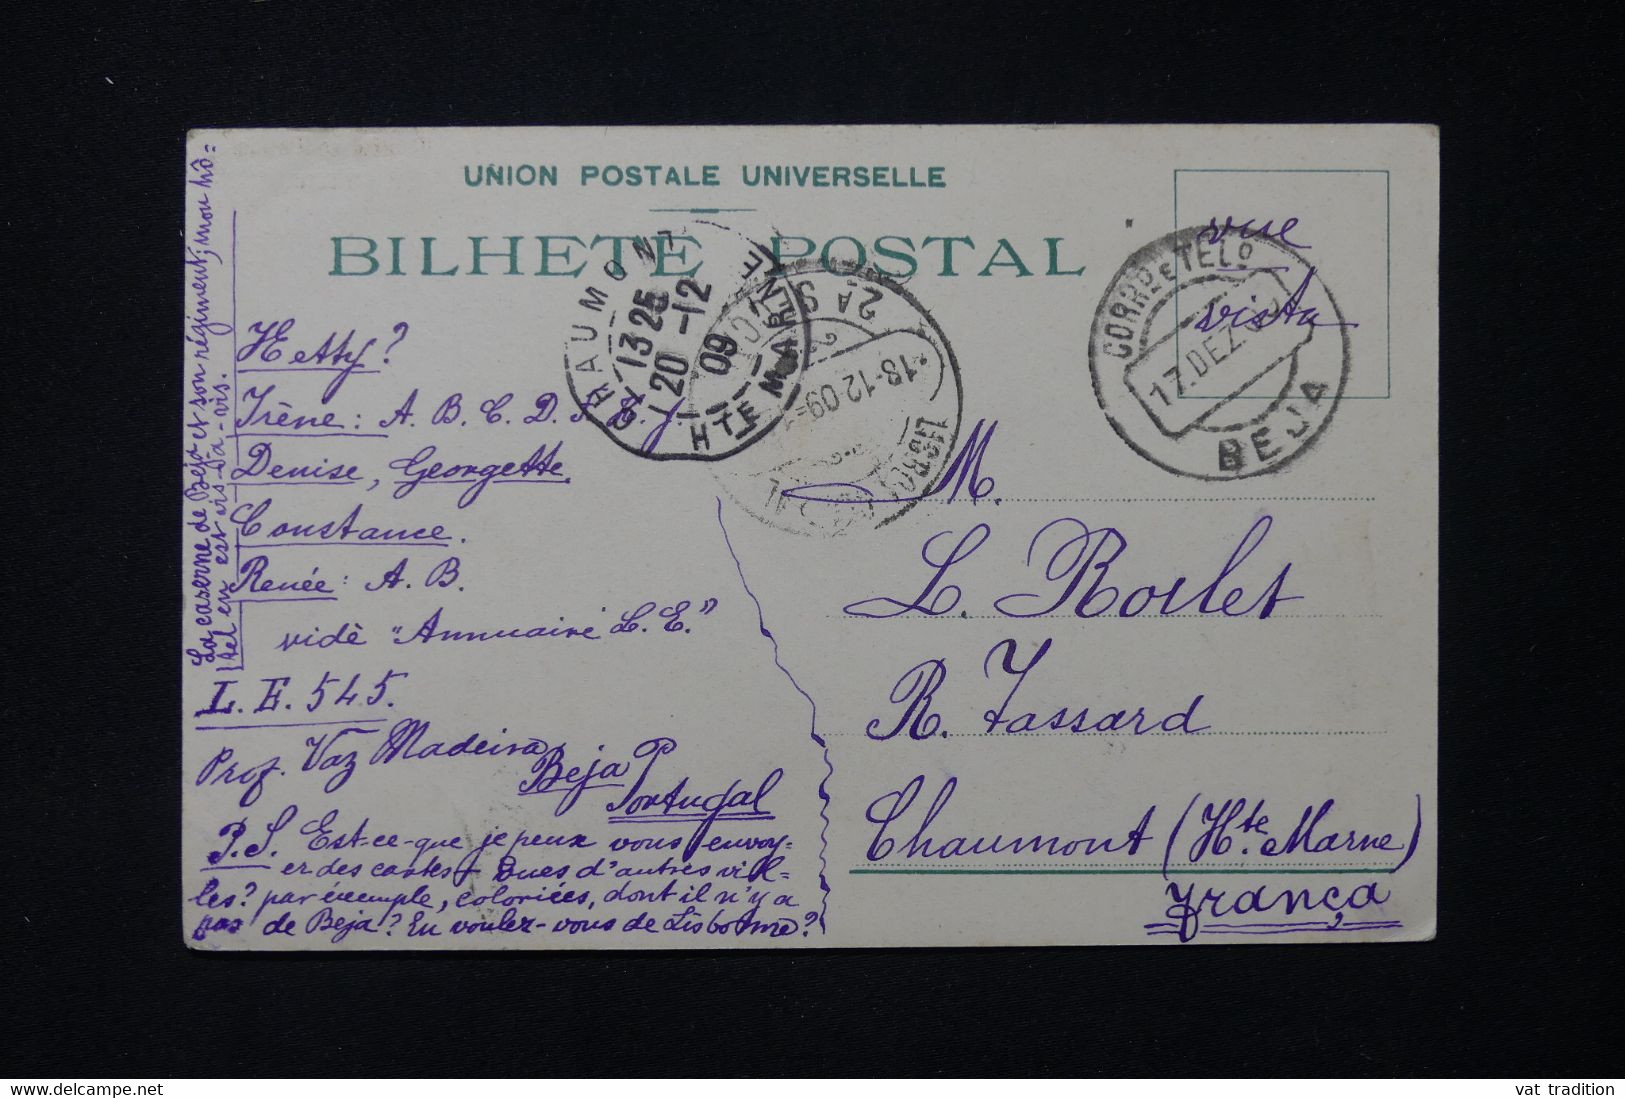 UNION POSTALE UNIVERSELLE
BILHETE POSTAL
vue
vista
CORRº E TELº
17. DEZ.
BEJA
CHAUMONT
13 25
20 -12
09
HTE MARNE
2ª S
18-12 09
La caserne de Beja et son régiment; mon hô=
tel en est vis-à-vis.
Hetty?
Irène: A. B. C. D.
Denise, Georgette
Constance.
Renée: A. B.
vidè "Annuaire L. E."
L. E. 545.
Prof. Vaz Madeira
Beja
Portugal
P. S. Est-ce-que je peux vous envoy-
er des cartes-vues d'autres vil-
les? par éxemple, coloriées, dont il n'y a
pas de Beja? En voulez-vous de Lisbonne?
M.
L. Roilet
R. Tassard
Chaumont (Hte. Marne)
França
vat tradition